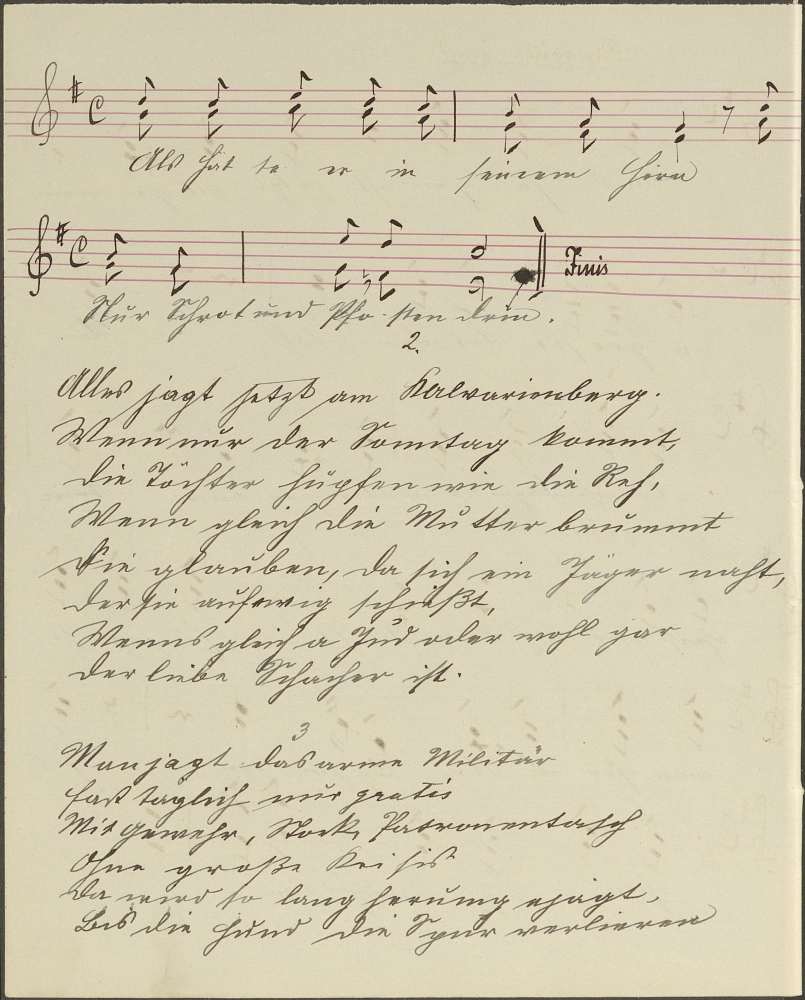 Als hät te er in seinem Hirn
Nur Schrot und Pfo- sten drin.
Finis
2.
Alles jagt jetzt am Kalvarienberg.
Wenn nur der Sonntag kommt,
Die Töchter hüpfen wie die Reh,
Wenn gleich die Mutter brummt
Sie glauben, da sich ein Jäger naht,
Der sie auf ewig schießt,
Wenns gleich a Jud oder wohl gar
Der liebe Schacher ist.
3
Man jagt das arme Militär
fast täglich nur gratis
Mit Gewehr, Stock, Patronentasch
Ohne große
Da wird so lang herumg ejagt,
Bis die Hund die Spur verlieren